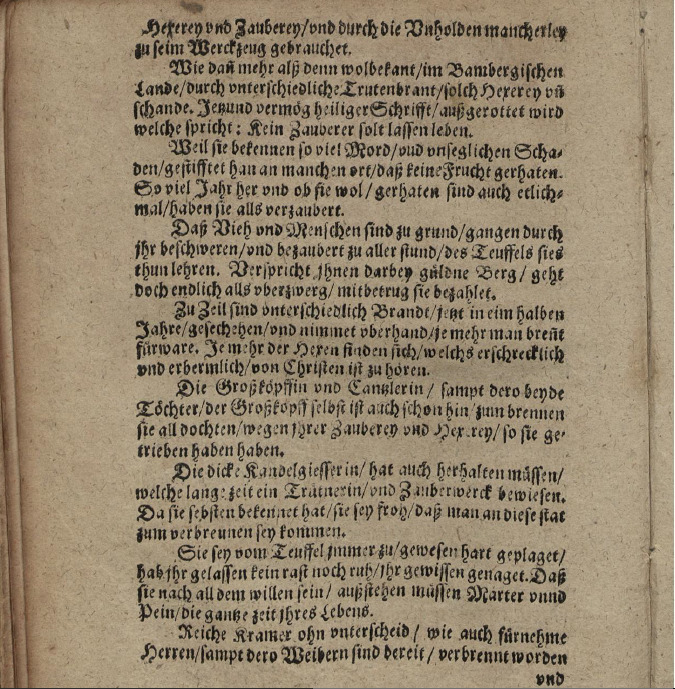 Hexerey vnd Zauberey/vnd durch die Vnholden mancherley
zu seim Werckzeug gebrauchet.
Wie dañ mehr alß denn wolbekant/im Bambergischen
Lande/durch vnterschiedliche Trutenbrant/solch Hexerey vñ
schande. Jetzund vermög heiliger Schrifft/außgerottet wird
welche spricht: Kein Zauberer solt lassen leben.
Weil sie bekennen so viel Mord/vnd vnseglichen Scha-
den/gestifftet han an manchen ort/daß keine Frucht gerhaten.
So viel Jahr her vnd ob sie wol/gerhaten sind auch etlich-
mal/haben sie alls verzaubert.
Daß Vieh vnd Menschen sind zu grund/gangen durch
jhr beschweren/vnd bezaubert zu aller stund/des Teuffels sies
thun lehren. Verspricht jhnen darbey güldne Berg/ geht
doch endlich alls vberzwerg/mit betrug sie bezahlet.
Zu Zeil sind vnterschiedlich Brandt/jetzt in eim halben
Jahre/gesechehen/vnd nimmet vberhand/je mehr man breñt
fürware. Je mehr der Hexen finden sich/welchs erschrecklich
vnd erbermlich/von Christen ist zu hören.
Die Großköpffin vnd Cantzlerin/ sampt dero beyde
Töchter/der Großkopff selbst ist auch schon hin/zum brennen
sie all dochten/wegen jhrer Zauberey vnd Hexerey/so sie ge-
trieben haben haben.
Die dicke Kandelgiesserin/hat auch herhalten müssen/
welche lange zeit ein Trütnerin/vnd Zauberwerck bewiesen.
Da sie sebsten bekennet hat/sie sey froh/daß man an diese stat
zum verbreunen sey kommen.
Sie sey vom Teuffel jmmer zu/gewesen hart geplaget/
hab jhr gelassen kein rast noch ruh/jhr gewissen genaget. Daß
sie nach all dem willen sein/ außstehen müssen Marter vnnd
Pein/die gantze zeit jhres Lebens.
Reiche Kramer ohn vnterscheid/ wie auch fürnehme
Herren/sampt dero Weibern sind bereit/ verbrennt worden
vnd